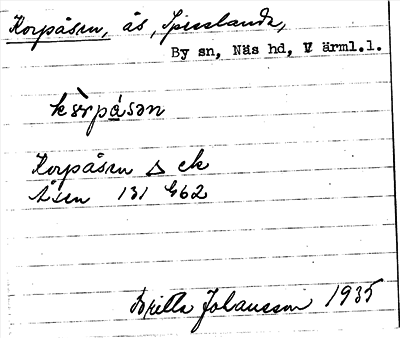 Korpåsen, ås, Spesslanda,
By sn, Näs hd, Värml.l.
kòrpásən
Korpåsen △ ek
Åsen 131 G62
Britta Johansson 1935